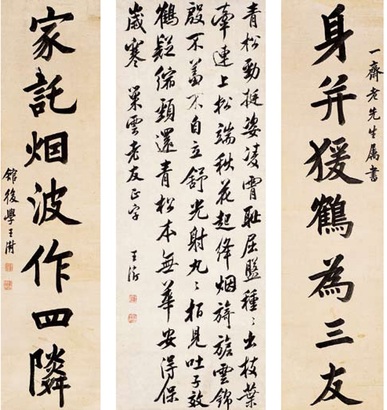 一齋老先生属書
身并猨鶴為三友
青松勁挺姿凌霄恥屈盤種〻出枝葉
牽連上松端秋花起絳烟旖旎雲錦
殷不羞不自立舒光射丸〻柏見吐子效
鶴疑縮頸還青松本無華安得保
歲寒 巢雲老友正字 王澍
家託烟波作四隣
館後學王澍